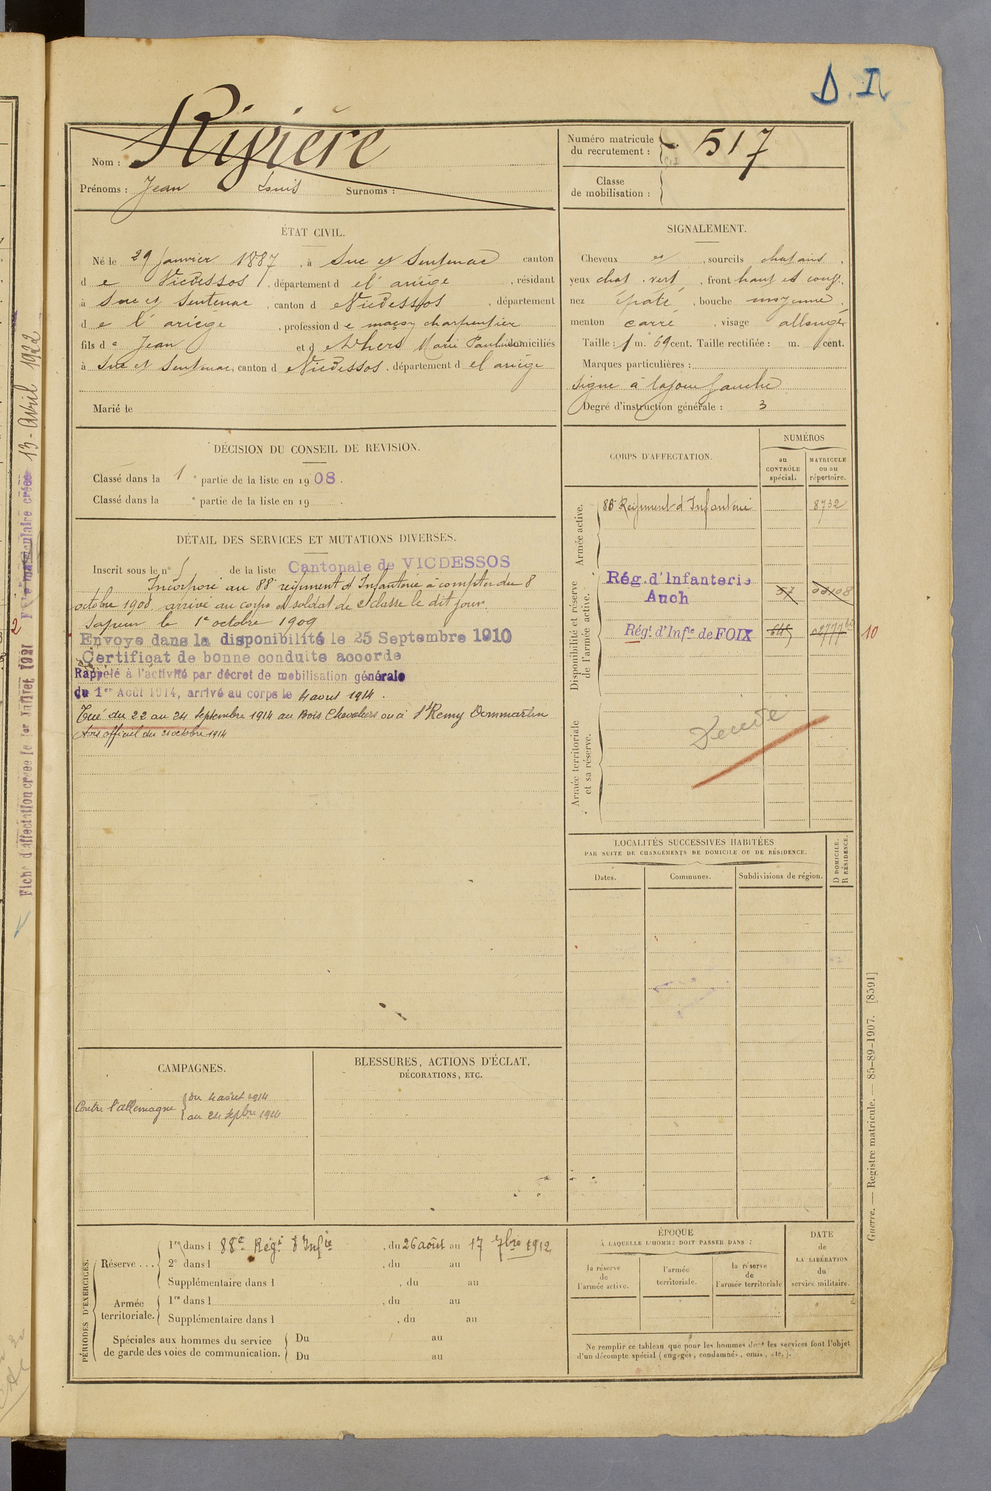 D.
Nom : Rivière
Prénoms : Jean Louis Surnoms :
Numéro matricule du recrutement : 517
Classe de mobilisation :
ÉTAT CIVIL.
Né le 29 janvier 1887, à Suc et Sentenac canton
de Vicdessos, département d el'ariège, résidant
à Suc et Sentenac, canton d Vicdessos, département
d e l'ariège, profession de maçon charpentier
fils de Jean et d Marie domiciliés
à Suc et Sentenac, canton d Vicdessos, département d el ariège
Marié le
SIGNALEMENT.
Cheveux, sourcils chatains,
yeux chat. vert, front haut et
nez épaté, bouche moyenne,
menton carré, visage allongé
Taille : 1 m. 69 cent. Taille rectifiée : m. cent.
Marques particulières :
signe à la joue gauche
Degré d'instruction générale : 3
DÉCISION DU CONSEIL DE REVISION.
Classé dans la 1e partie de la liste en 1908.
Classé dans la e partie de la liste en 19
DÉTAIL DES SERVICES ET MUTATIONS DIVERSES.
Inscrit sous le n° de la liste Cantonale de VICDESSOS
Incorporé au 88e régiment d'Infanterie à compter du 8
octobre 1908, arrivé au corps et soldat de 2e classe le dit jour.
Sapeur le 1er octobre 1909
Envoyé dans la disponibilité le 25 Septembre 1910
Certificat de bonne conduite accordé
Rappelé à l'activité par décret de mobilisation générale
du 1er Août 1914, arrivé au corps le 4 aout 1914.
Tué du 22 au 24 Septembre 1914 au Bois Chevaliers ou à St Remy Dommartin
Avis officiel du 21 octobre 1914
CORPS D'AFFECTATION.
NUMÉROS
au CONTRÔLE spécial.
MATRICULE ou au répertoire.
Armée active.
88e Régiment d'Infanterie 8732
Disponibilité et réserve de l'armée active.
Rég. d'Infanterie
Auch 57
Régt. d'Infie de FOIX
10
Armée territoriale et sa réserve.
LOCALITÉS SUCCESSIVES HABITÉES
PAR SUITE DE CHANGEMENTS DE DOMICILE OU DE RÉSIDENCE.
Dates. Communes. Subdivisions de région. D DOMICILE. R RÉSIDENCE.
CAMPAGNES.
Contre l'allemagne du 4 aout 1914
au 24 Sptbre 1914
BLESSURES, ACTIONS D'ÉCLAT,
DÉCORATIONS, ETC.
PÉRIODES D'EXERCICES.
Réserve...
1re dans l 88e Régt d'Infie, du 26 août au 17 7bre 1912
2e dans l, du au
Supplémentaire dans l, du au
Armée territoriale.
1re dans l, du au
Supplémentaire dans l, du au
Spéciales aux hommes du service de garde des voies de communication.
Du au
Du au
ÉPOQUE
À LAQUELLE L'HOMME DOIT PASSER DANS :
la réserve de l'armée active.
l'armée territoriale.
la réserve de l'armée territoriale
DATE
de
LA LIBÉRATION
du
service militaire.
Ne remplir ce tableau que pour les hommes dont les services font l'objet
d'un décompte spécial (engagés, condamnés, omis, etc.).
Guerre. — Registre matricule. — 85-89-1907. [8591]
Fiche d'affectation créée le 1er Juillet 1921
13 - Avril 1922